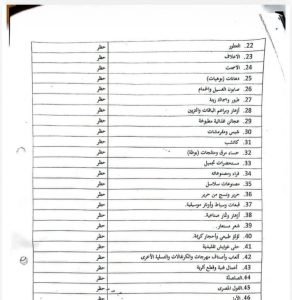 22. العطور حظر
23. الاعلاف حظر
24. الاسمنت حظر
25. دهانات (بوهيات) حظر
26. صابون الغسيل والحمام حظر
27. طيور واسماك زينة حظر
28. أزهار وبراعم الباقات والتزيين حظر
29. عجائن غذائية مطبوخة حظر
30. شيبس ومقرمشات حظر
31. كاتشب حظر
32. حساء مرق ومنتجات (بوظة) حظر
33. مستحضرات تجميل حظر
34. فراء ومصنوعاته حظر
35. مصنوعات سلاسل حظر
36. حرير ونسج من حرير حظر
37. قبعات وسياط وأوتار موسيقية. حظر
38. أزهار وثمار صناعية. حظر
39. شعر مستعار. حظر
40. لؤلؤ طبيعي وأحجار كريمة. حظر
41. حلى غوايش تقليدية حظر
42. ألعاب وأصناف مهرجانات والكرنفالات والتسلية الأخرى حظر
43. أعمال فنية وقطع أثرية حظر
44. الصلصلة حظر
45. الفول المصري حظر
46. حظر